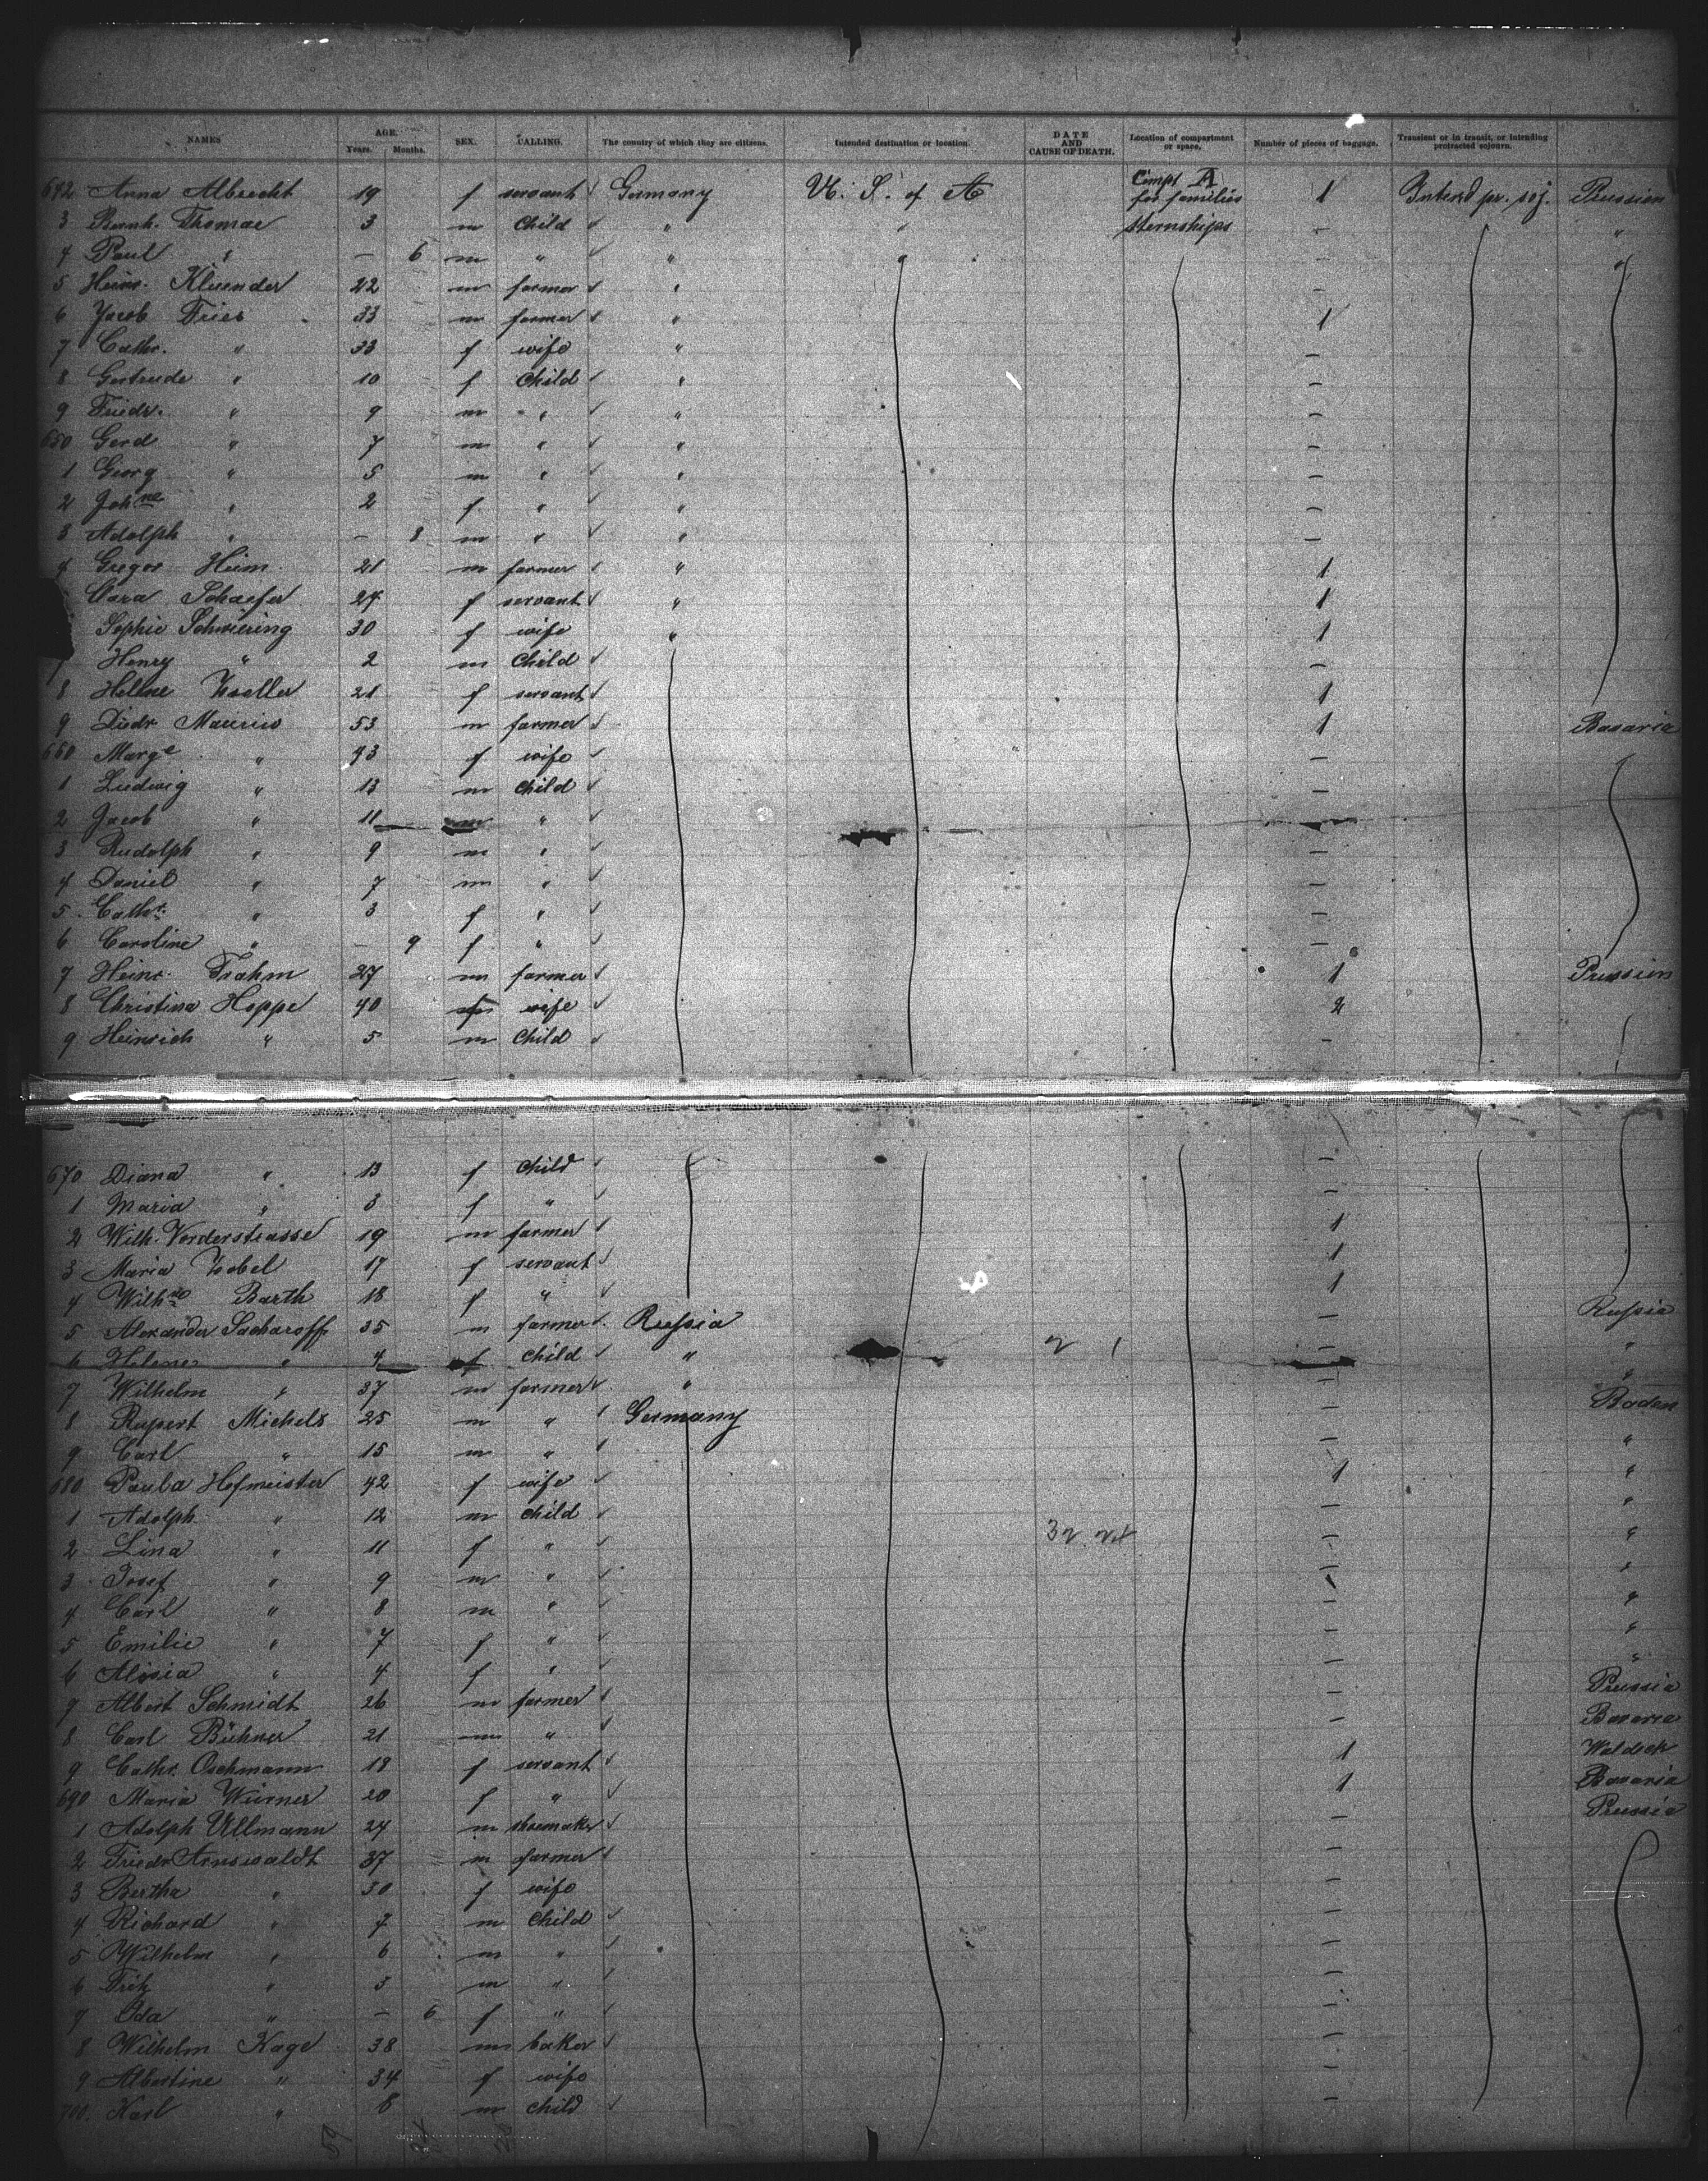 NAMES AGE. Years. Months. SEX. CALLING. The country of which they are citizens. Intended destination or location. DATE AND CAUSE OF DEATH. Location of compartment or space. Number of pieces of baggage. Transient or in transit, or intending protracted sojourn.
642 Anna Albrecht 19 f servant Germany U. S. of A Compt A for families 1 Intend pr. soj. Prussien
3 Bernh. Thomae 3 m Child " " sternships — "
4 Paul " — 6 m " " " — "
5 Heinr. Kluender 22 m farmer " —
6 Jacob Fries 33 m farmer " 1
7 Cathr. " 33 f wife " —
8 Gertrude " 10 f Child " —
9 Friedr. " 9 m " " —
650 Gerd " 7 m " " —
1 Georg " 5 m " " —
2 Johne " 2 f " " —
3 Adolph " — 8 m " " —
4 Gregor Heim 21 m farmer " 1
Clara Schaefer 24 f servant " 1
Sophie Schwiering 30 f wife " 1
7 Henry " 2 m Child —
8 Helene 21 f servant 1
9 Diedr 53 m farmer 1 Bavaria
660 Marge " 43 f wife —
1 Ludwig " 13 m Child —
2 Jacob " 11 m "
3 Rudolph " 9 m " —
4 Daniel " 7 m " —
5 Cathr. " 3 f " —
6 Caroline " — 9 f " —
7 Heinr. Frahm 27 m farmer 1 Prussien
8 Christina Hoppe 40 f wife 2
9 Heinrich " 5 m Child —
670 Diana " 13 f Child —
1 Maria " 8 f " —
2 Wilh. Vorderstrasse 19 m farmer 1
3 Maria Zobel 17 f servant 1
4 Wilhne Barth 18 f " 1
5 Alexander Sacharoff 35 m farmer Russia — Russia
6 Helene " 4 f Child " — "
7 Wilhelm " 37 m farmer " — "
8 Rupert Michels 25 m " Germany — Baden
9 Carl " 15 m " — "
680 Paula Hofmeister 42 f wife 1 "
1 Adolph " 12 m Child — "
2 Lina " 11 f " — "
3 Josef " 9 m " — "
4 Carl " 8 m " — "
5 Emilie " 7 f " — "
6 Aloisia " 4 f " — "
7 Albert Schmidt 26 m farmer — Prussia
8 Carl Bühner 21 m " — Bavaria
9 Cathr. Oschmann 18 f servant 1 Waldeck
690 Maria Würner 20 f " 1 Bavaria
1 Adolph Ullmann 24 m shoemaker — Prussia
2 Friedr Arnswaldt 37 m farmer —
3 Bertha " 30 f wife —
4 Richard " 7 m Child —
5 Wilhelm " 6 m " —
6 Fritz " 3 m " —
7 Ida " — 6 f " —
8 Wilhelm Kage 38 m baker —
9 Albertine " 34 f wife —
700 Karl " 8 m child —